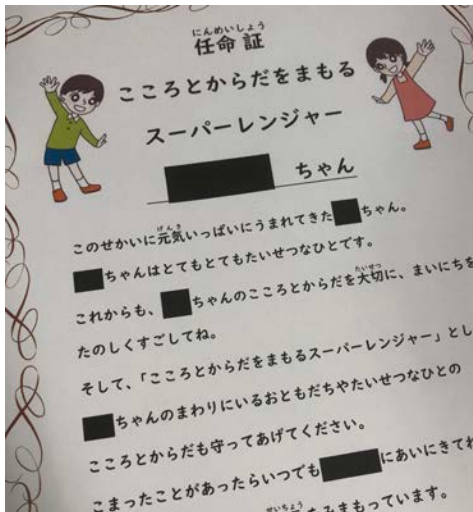 にんめいしょう
任命証
こころとからだをまもる
スーパーレンジャー
ちゃん
げんき
このせかいに元気いっぱいにうまれてきた ちゃん。
ちゃんはとてもとてもたいせつなひとです。
たいせつ
これからも、 ちゃんのこころとからだを大切に、まいにちを
たのしくすごしてね。
そして、「こころとからだをまもるスーパーレンジャー」とし
ちゃんのまわりにいるおともだちやたいせつなひとの
こころとからだも守ってあげてください。
こまったことがあったらいつでも にあいにきてね
せいちょう
をみまもっています。